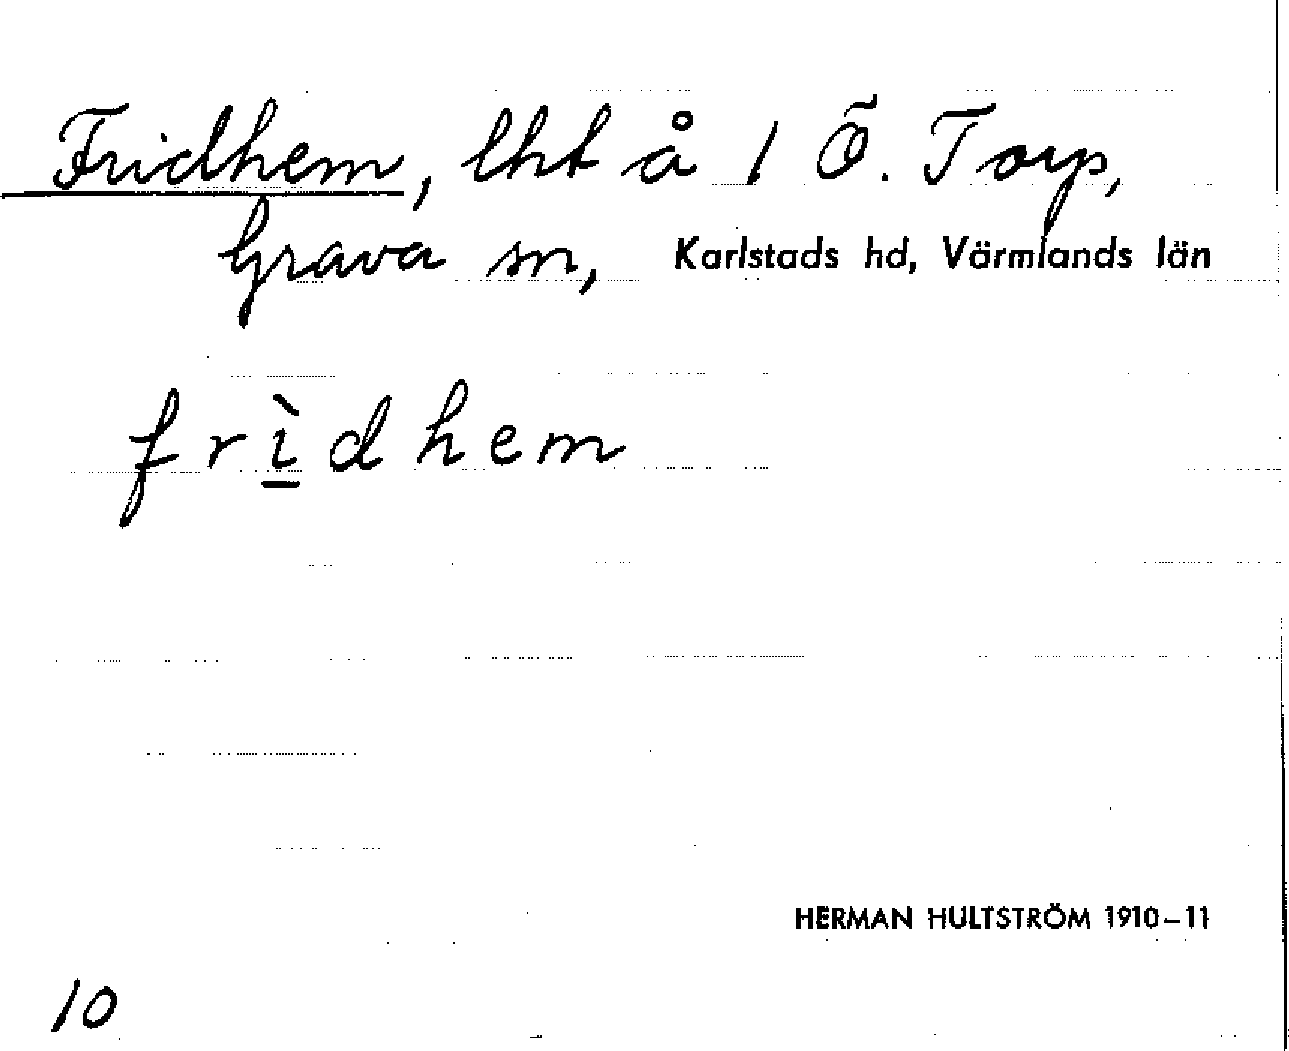 Fridhem, lht å 1 Ö. Torp,
Grava sn, Karlstads hd, Värmlands län
frìdhem
HERMAN HULTSTRÖM 1910–11
10